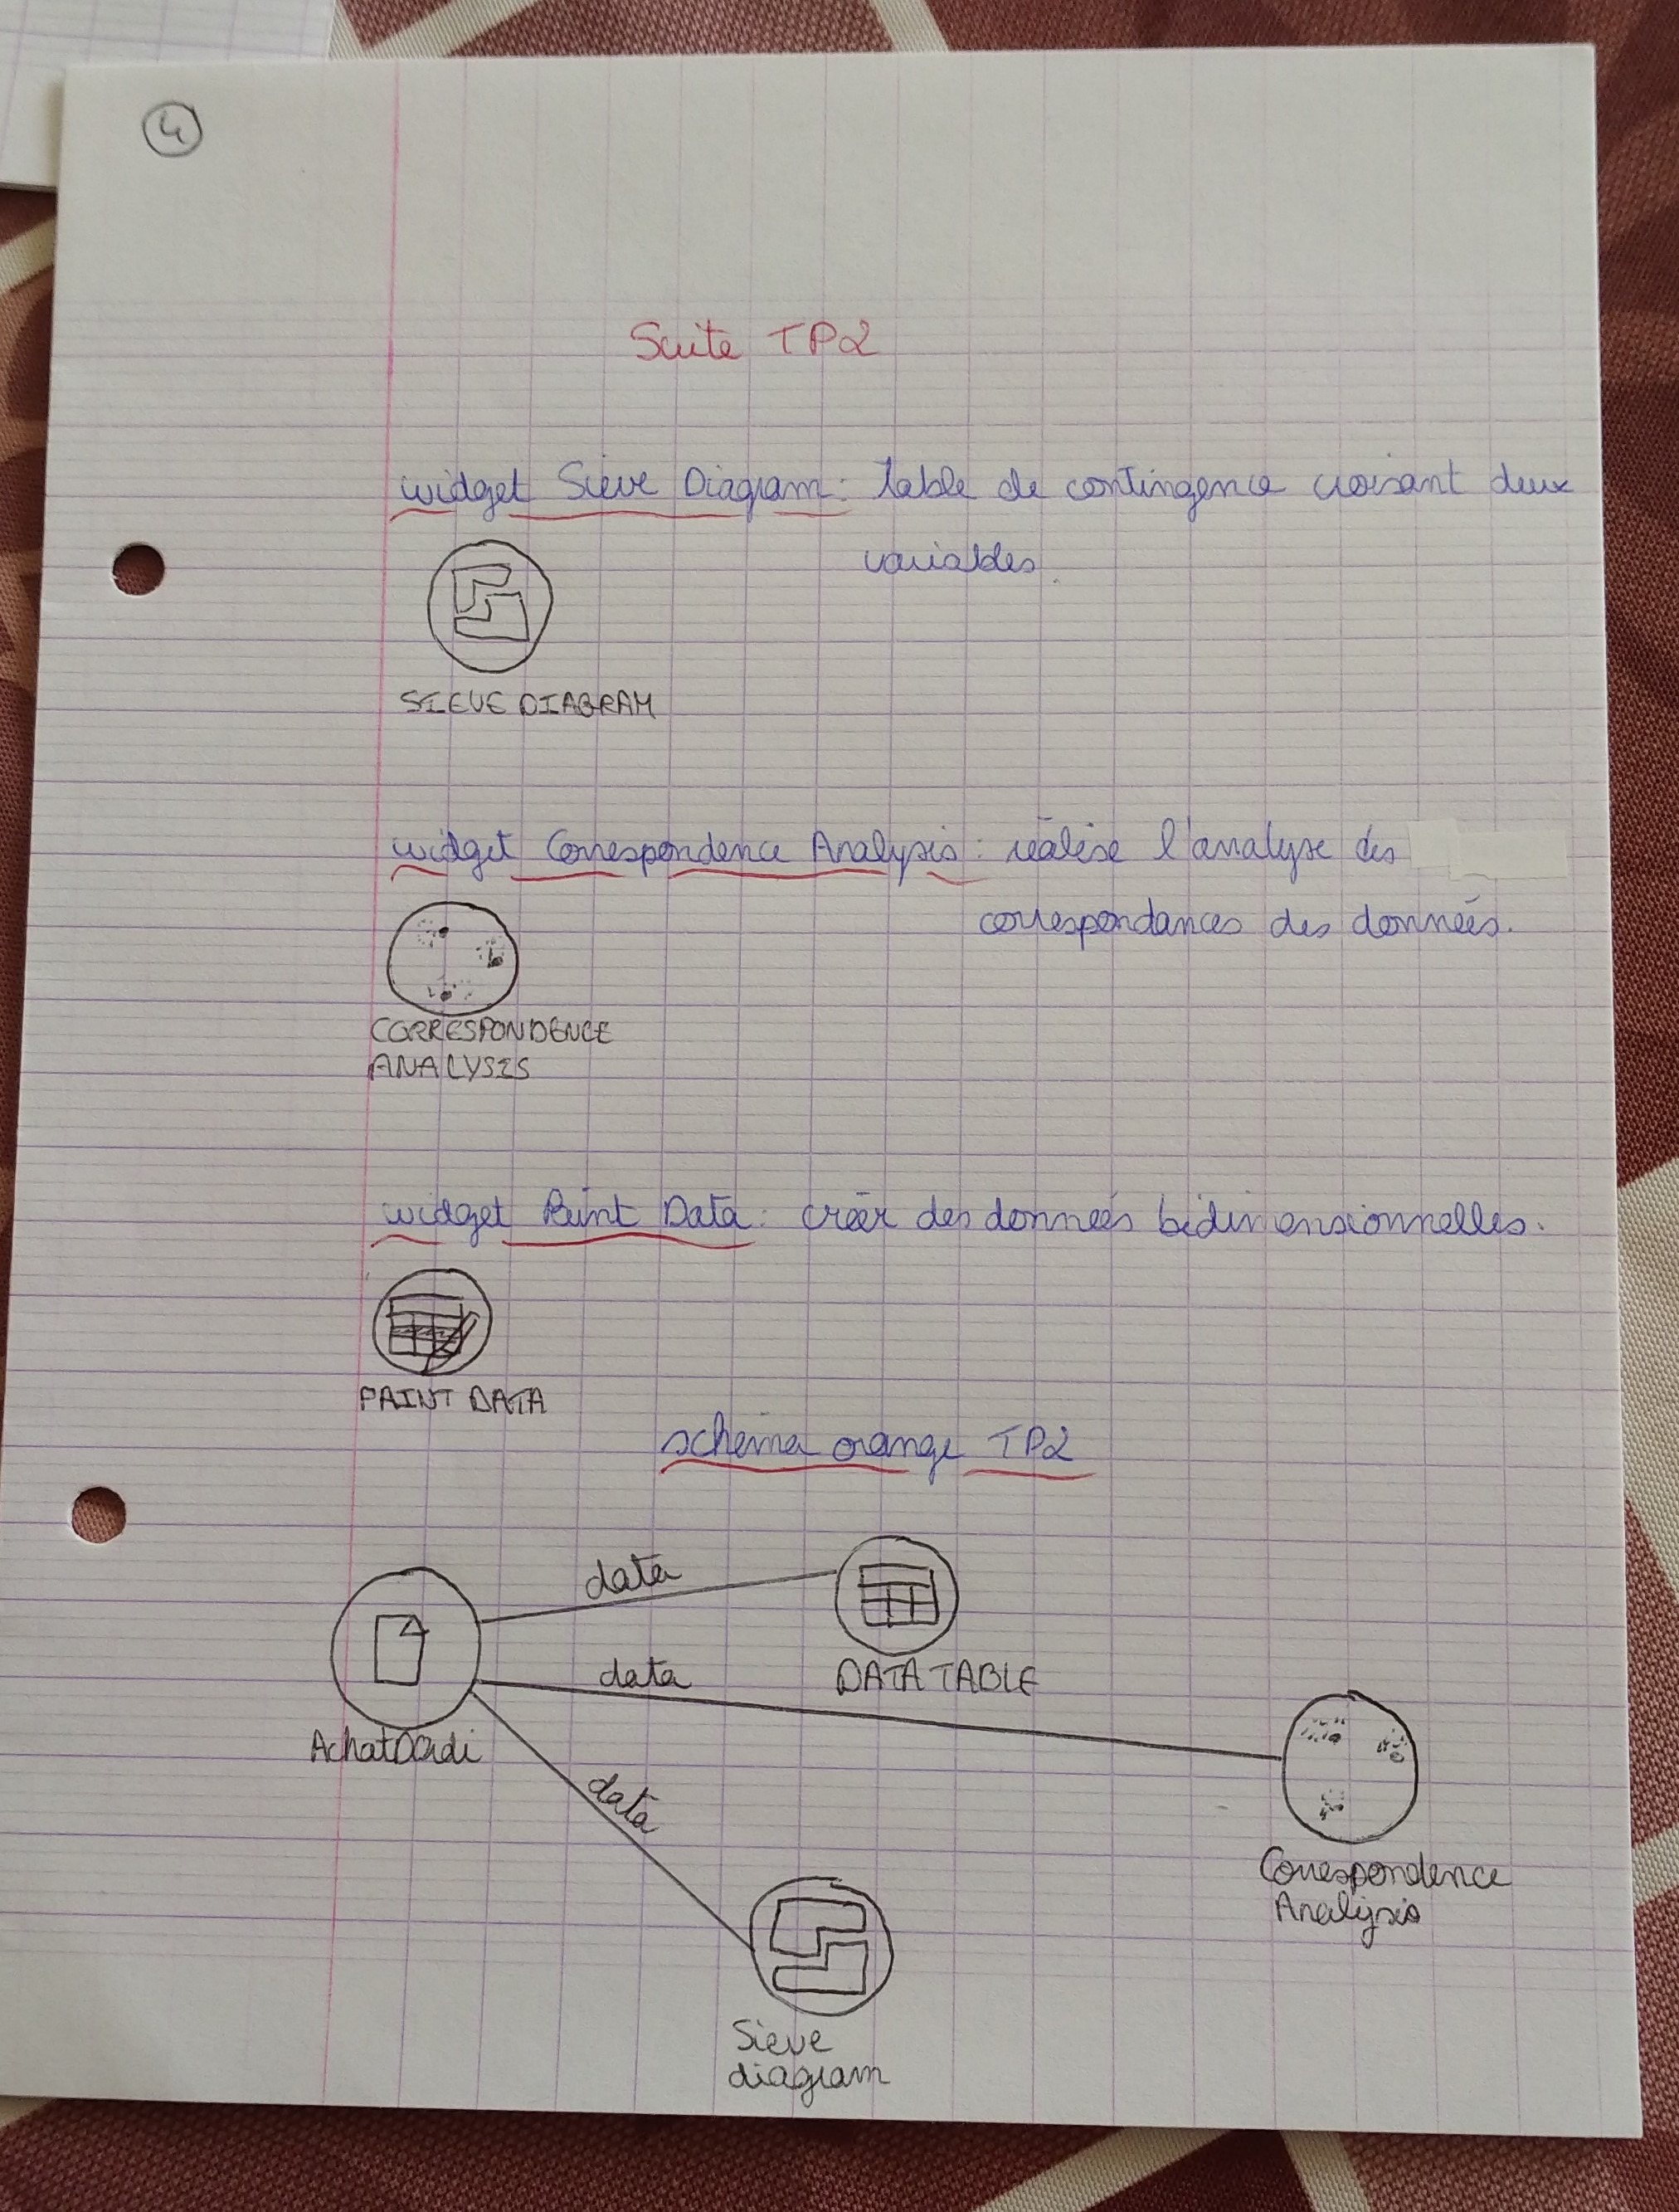 4
Suite TP2
widget Sieve Diagram : table de contingence croisant deux
variables.
SIEVE DIAGRAM
widget Correspondence Analysis : réalise l'analyse des
correspondances des données.
CORRESPONDENCE
ANALYSIS
widget Paint Data : créer des données bidimensionnelles.
PAINT DATA
schéma orange TP2
data
data
DATA TABLE
AchatDardi
data
Correspondence
Analysis
Sieve
diagram